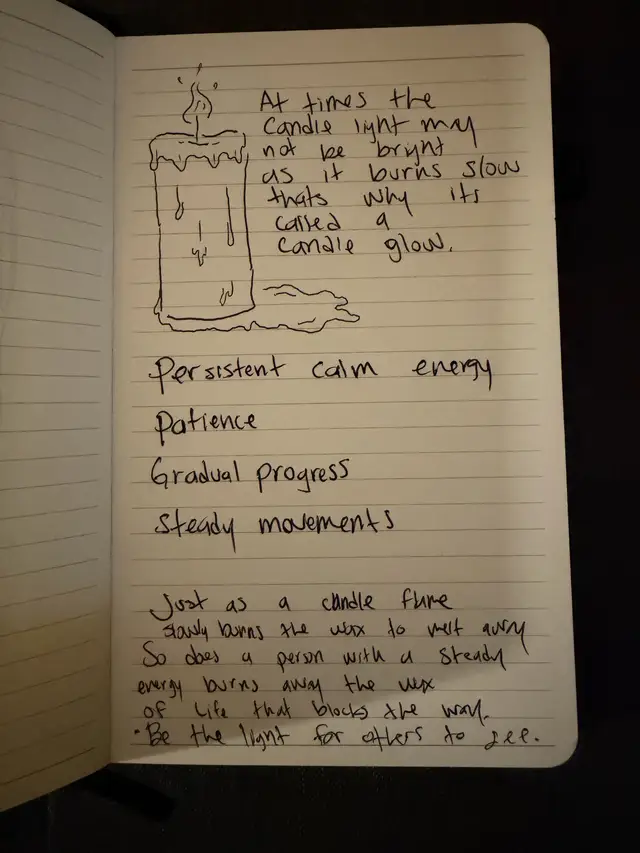 At times the
candle light may
not be bright
as it burns slow
thats why its
called a
candle glow.
Persistent calm energy
Patience
Gradual progress
Steady movements
Just as a candle flame
slowly burns the wax to melt away
So does a person with a steady
energy burns away the wax
of life that blocks the way.
• Be the light for others to see.